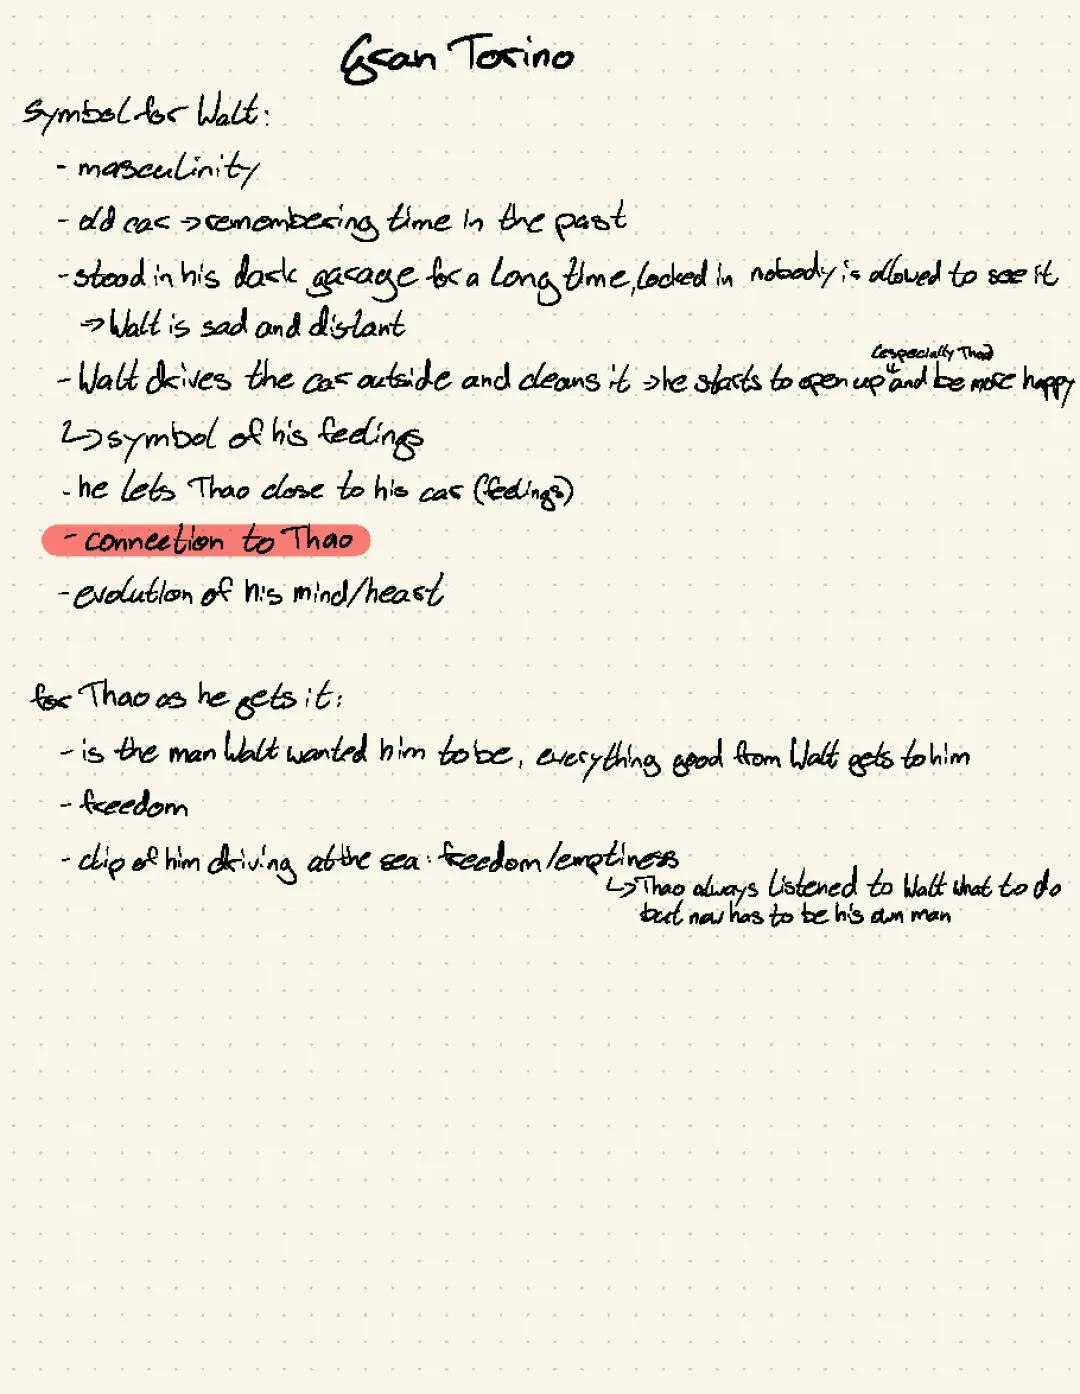 Gran Torino
Symbol for Walt:
- masculinity
- old car → remembering time in the past
- stood in his dark garage for a long time, locked in nobody is allowed to see it
⇒ Walt is sad and distant
(especially Thao)
- Walt drives the car outside and cleans it → he starts to open up and be more happy
↳ symbol of his feelings
- he lets Thao close to his car (feelings)
- connection to Thao
- evolution of his mind/heart
for Thao as he gets it:
- is the man Walt wanted him to be, everything good from Walt gets to him
- freedom
- clip of him driving at the sea: freedom/emptiness
↳ Thao always listened to Walt what to do
but now has to be his own man